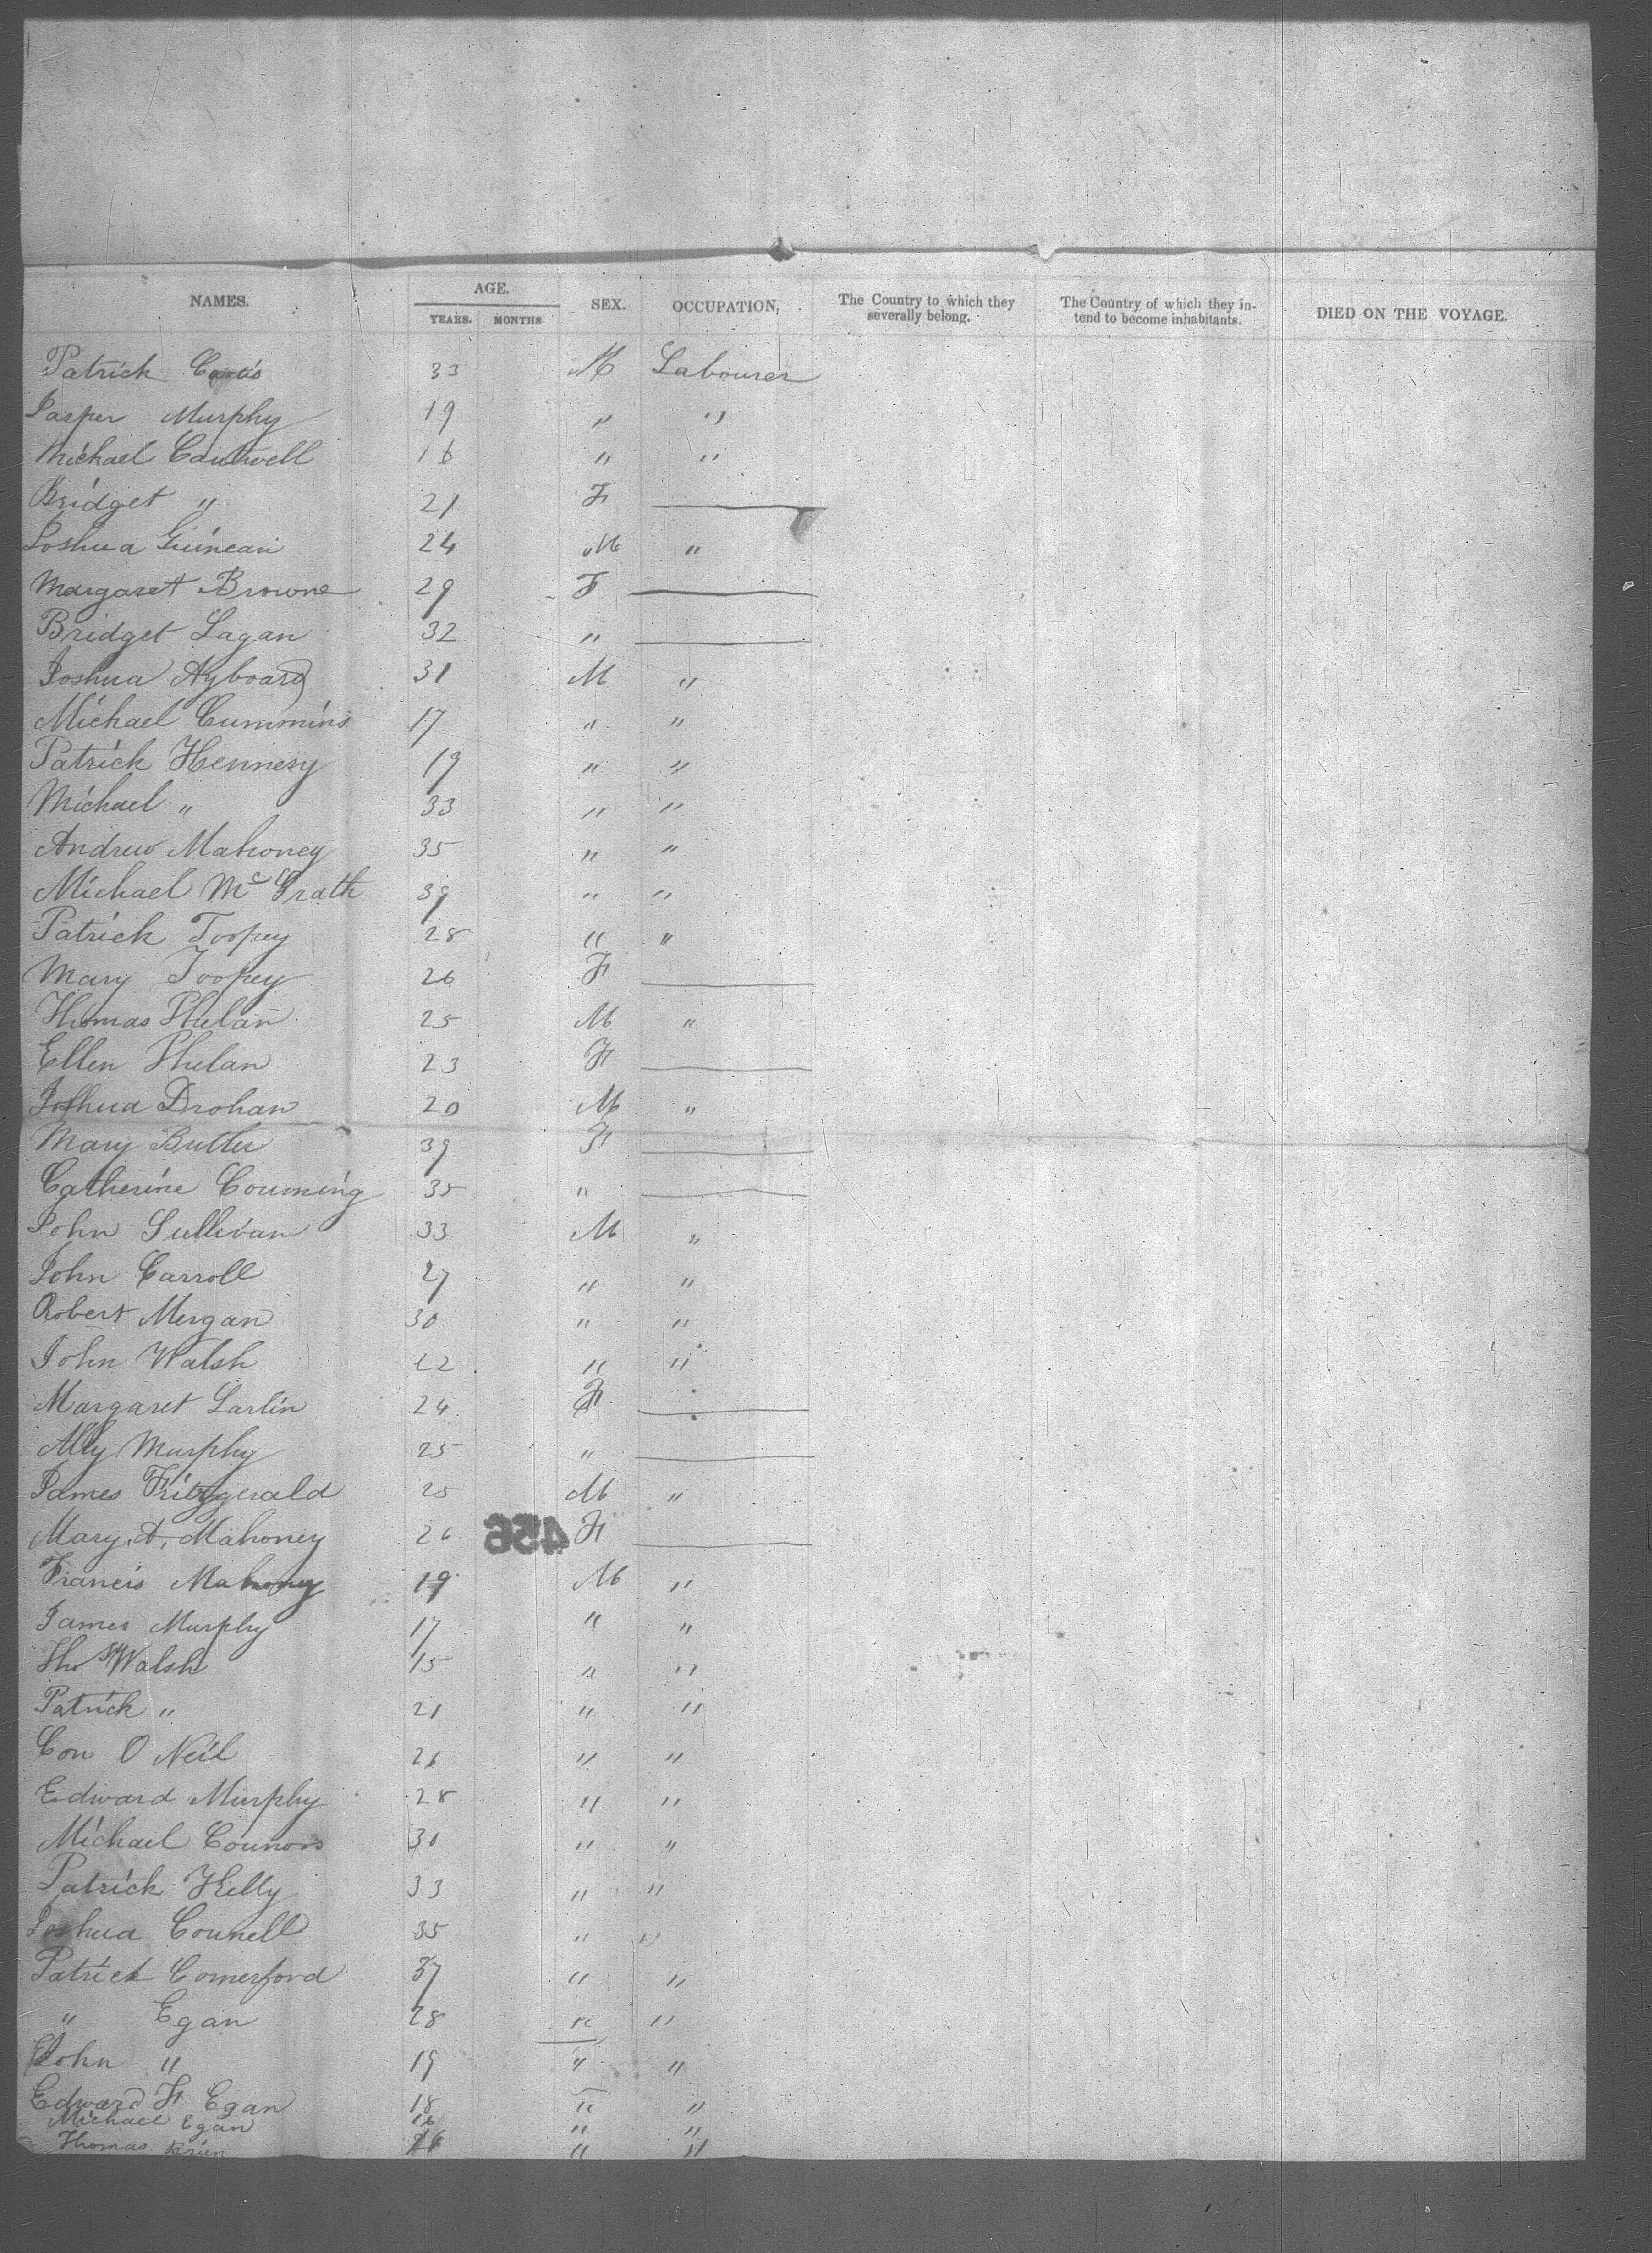 NAMES. AGE. SEX. OCCUPATION. The Country to which they severally belong. The Country of which they intend to become inhabitants. DIED ON THE VOYAGE.
YEARS. MONTHS
Patrick 33 M Labourer
Jasper Murphy 19 " "
Michael Cantwell 16 " "
Bridget " 21 F
Joshua Guinean 24 M "
Margaret Browne 29 F
Bridget Lagan 32 "
Joshua Ayboard 31 M "
Michael Cummins 17 " "
Patrick Hennesy 19 " "
Michael " 33 " "
Andrew Mahoney 35 " "
Michael McGrath 39 " "
Patrick Toopey 28 " "
Mary Toopey 26 F
Thomas Phelan 25 M "
Ellen Phelan 23 F
Joshua Drohan 20 M "
Mary Butler 39 F
Catherine Couming 35 "
John Sullivan 33 M "
John Carroll 27 " "
Robert Mergan 30 " "
John Walsh 22 " "
Margaret Larlin 24 F
Ally Murphy 25 "
James Fitzgerald 25 M "
Mary A. Mahoney 26 456 F
Francis Mahoney 19 M "
James Murphy 17 " "
Thos Walsh 15 " "
Patrick " 21 " "
Con O Neil 26 " "
Edward Murphy 28 " "
Michael Counors 30 " "
Patrick Kelly 33 " "
Joshua Counell 35 " "
Patrick Comerford 37 " "
" Egan 28 " "
John " 19 " "
Edward F Egan 18 " "
Michael Egan 16 " "
Thomas Brien " "